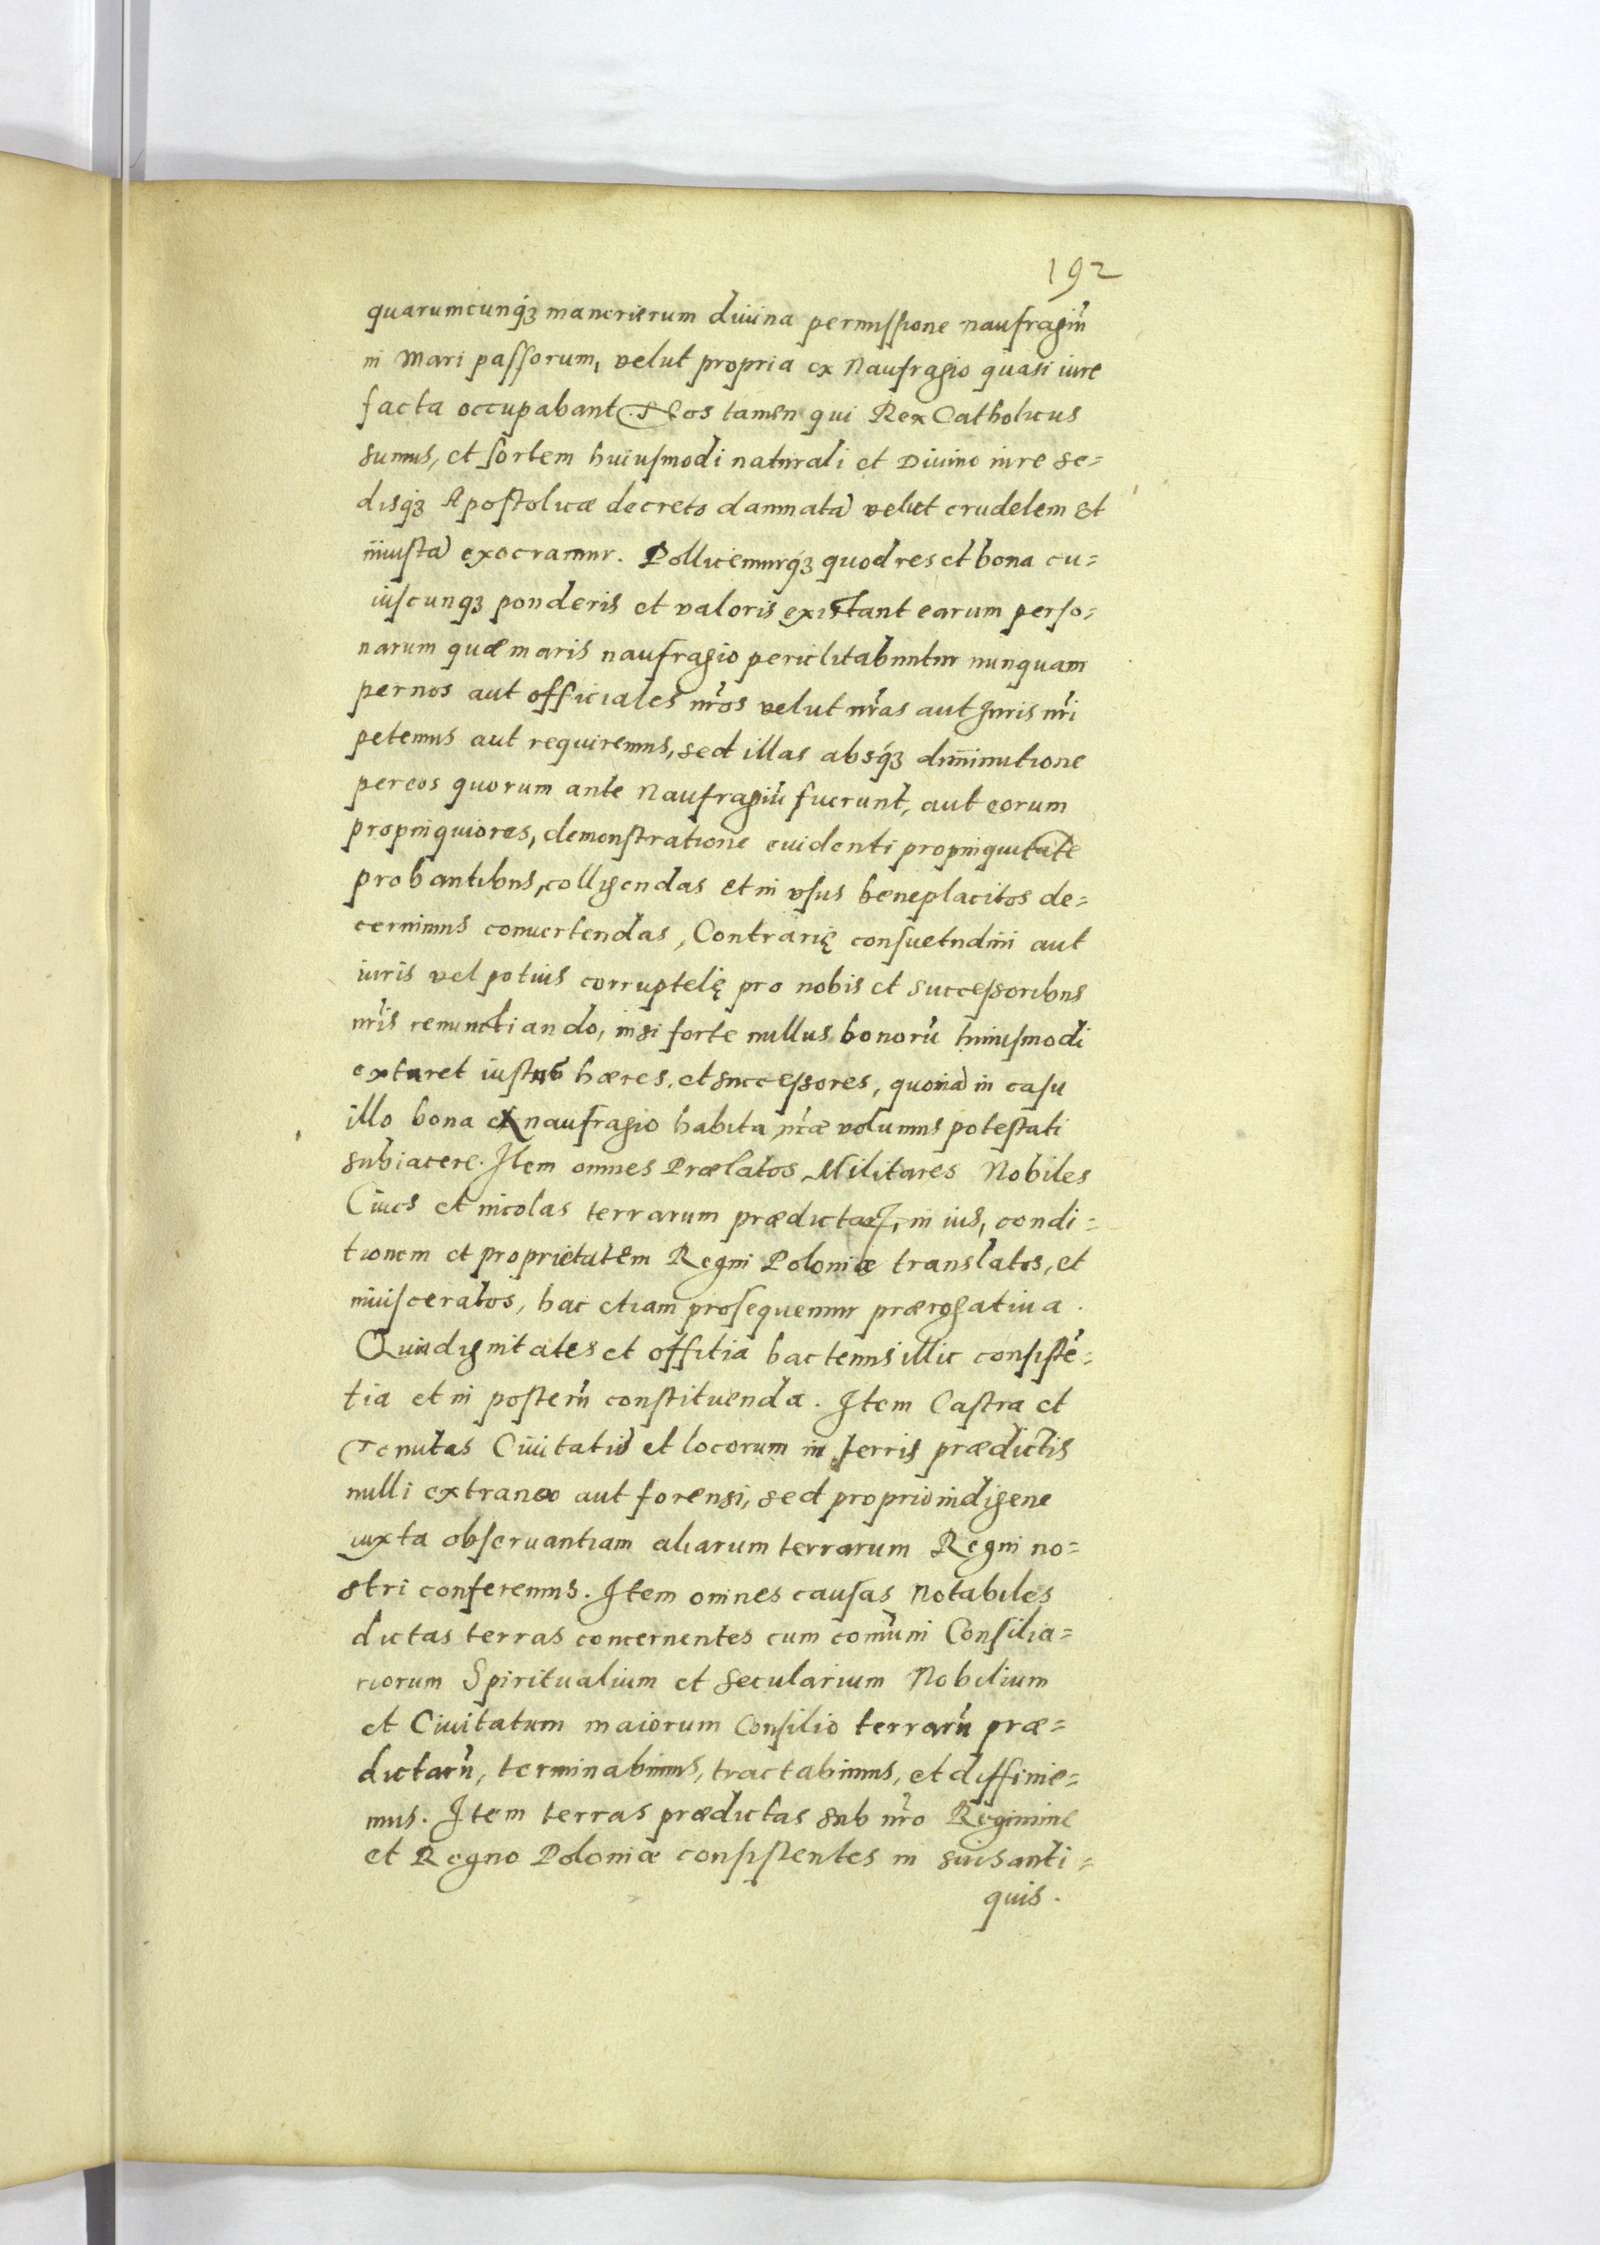 192
quarumcunqꝫ manerierum diuina permissione naufragiũ
in Mari passorum, velut propria ex Naufragio quasi iure
facta occupabant. Nos tamen qui Rex Catholicus
sumus, et sortem huiusmodi naturali et Diuino iure se=
disqꝫ Apostolicæ decreto damnatã velut crudelem et
iniustã execramur. Pollicemurqꝫ quod res et bona cu=
iuscunqꝫ ponderis et valoris existant earum perso=
narum quæ maris naufragio periclitabuntur nunquam
per nos aut officiales nr̃os velut nr̃as aut Juris nr̃i
petemus aut requiremus, sed illas absqꝫ diminutione
per eos quorum ante Naufragiũ fuerunt, aut eorum
propinquiores, demonstratione euidenti propinquitate
probantibus, colligendas et in vsus beneplacitos de=
cernimus conuertendas, Contrarię consuetudini aut
iuris vel potius corruptelę pro nobis et successoribus
nr̃is renunctiando, nisi forte nullus bonorũ huiusmodi
extaret iustus hæres et successores, quoniã in casu
illo bona ex naufragio habita nr̃æ volumus potestati
subiacere. Item omnes Prælatos Militares Nobiles
Ciues et incolas terrarum prædictarꝫ, in ius, condi=
tionem et proprietatem Regni Poloniæ translatos, et
inuisceratos, hac etiam prosequemur prærogatiua.
Quia dignitates et offitia hactenus illic consistẽ=
tia et in posterũ constituenda. Item Castra et
Tenutas Ciuitatũ et locorum in terris prædictis
nulli extraneo aut forensi, sed proprio indigene
iuxta obseruantiam aliarum terrarum Regni no=
stri conferemus. Item omnes causas Notabiles
dictas terras concernentes cum com̃uni Consilia=
riorum Spiritualium et secularium Nobilium
et Ciuitatum maiorum Consilio terrarũ præ=
dictarũ, terminabimus, tractabimus, et diffinie=
mus. Item terras prædictas sub nr̃o Regimine
et Regno Poloniæ consistentes in suis anti=
quis.